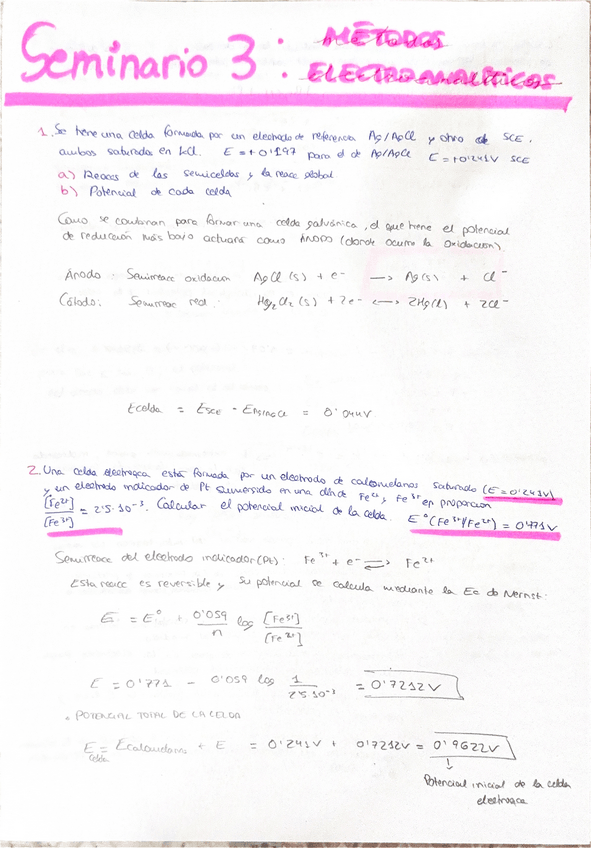 Seminario 3: MÉTODOS
ELECTROANALÍTICOS
1. Se tiene una celda formada por un electrodo de referencia Ag/AgCl y otro de SCE,
ambos saturados en KCl. E = +0'197 para el de Ag/AgCl E = +0'241V SCE
a) Reacc de las semiceldas y la reacc global.
b) Potencial de cada celda
Como se combinan para formar una celda galvánica, el que tiene el potencial
de reducción más bajo actuará como ÁNODO (donde ocurre la oxidación).
Ánodo: Semirreacc oxidación AgCl (s) + e⁻ → Ag(s) + Cl⁻
Cátodo: Semirreac red: Hg₂Cl₂(s) + 2e⁻ ↔ 2Hg(l) + 2Cl⁻
Ecelda = ESCE - EAg/AgCl = 0'044V
2. Una celda electroqca está formada por un electrodo de calomelanos saturado (E=0'241V)
y un electrodo indicador de Pt sumergido en una dln de Fe²⁺, Fe³⁺ en proporcion
[Fe²⁺]/[Fe³⁺] = 2'5·10⁻³. Calcular el potencial inicial de la celda. E°(Fe³⁺/Fe²⁺) = 0'771V
Semirreacc del electrodo indicador (Pt): Fe³⁺ + e⁻ ⇌ Fe²⁺
Esta reacc es reversible y su potencial se calcula mediante la Ec de Nernst:
E = E° + 0'059/n log [Fe³⁺]/[Fe²⁺]
E = 0'771 - 0'059 log 1/2'5·10⁻³ = 0'7212V
• POTENCIAL TOTAL DE LA CELDA
Ecelda = Ecalomelanos + E = 0'241V + 0'7212V = 0'9622V
↓
Potencial inicial de la celda
electroqca